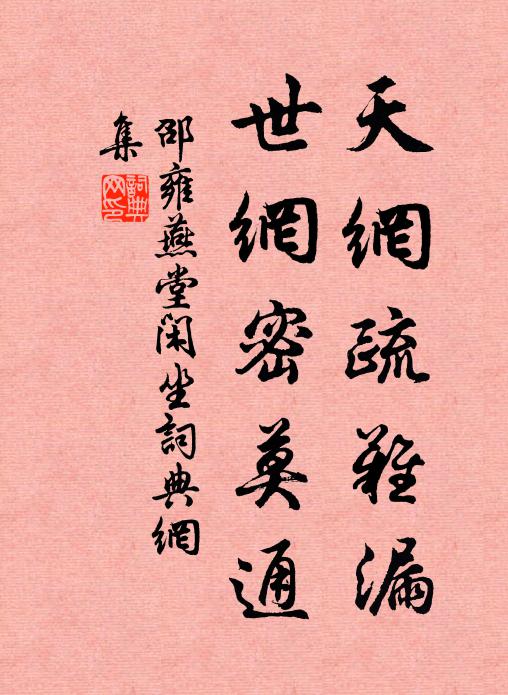 天網疏難漏
世網密莫通
邵雍燕堂閑坐詞典網
集
詞典
网印